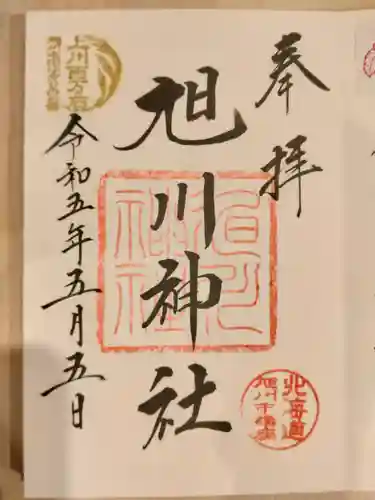 奉拝
旭川神社
旭川神社
北海道
令和五年五月五日